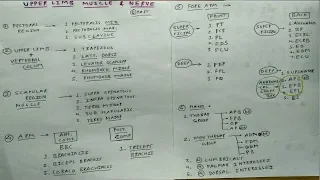 UPPER LIMB MUSCLE & NERVE
① PECTORAL REGION
1. PECTORALIS MAJ.
2. PECTORALIS MIN.
3. SUB CLAVIUS
② UPPER LIMB VERTEBRAL COLUMN
1. TRAPEZIUS
2. LATI. DORSI
3. LEVATOR SCAPULAE
4. RHOMBOID MINOR
5. RHOMBOID MAJOR
③ SCAPULAR REGION MUSCLE
1. SUPRA SPINATUS
2. INFRA SPINATUS
3. TERES MINOR
4. SUB SCAPULARIS
5. TERES MAJOR
④ ARM
ANT. COMP.
BBC
1. BRACHIALIS
2. BICEPS BRACHII
3. CORACO BRACHIALIS
POST. COMP.
1. TRICEPS BRACHII
⑤ FORE ARM
FRONT
SUPERFICIAL
1. PT
2. FCR
3. PL
4. FDS
5. FCU
DEEP
1. FDP
2. FPL
3. PQ
BACK
SUPERFICIAL
DEEP
1. SUPINATOR
2. APL
3. EPB
4. EPL
5. EI
⑥ HAND
1. THENAR GROUP
APB
FPB
OP
AP
2. HYPOTHENAR GROUP
ADM
FDM
ODM
PB
3. LUMBRICALS
4. PALMAR INTEROSSEI
5. DORSAL INTEROSSEI